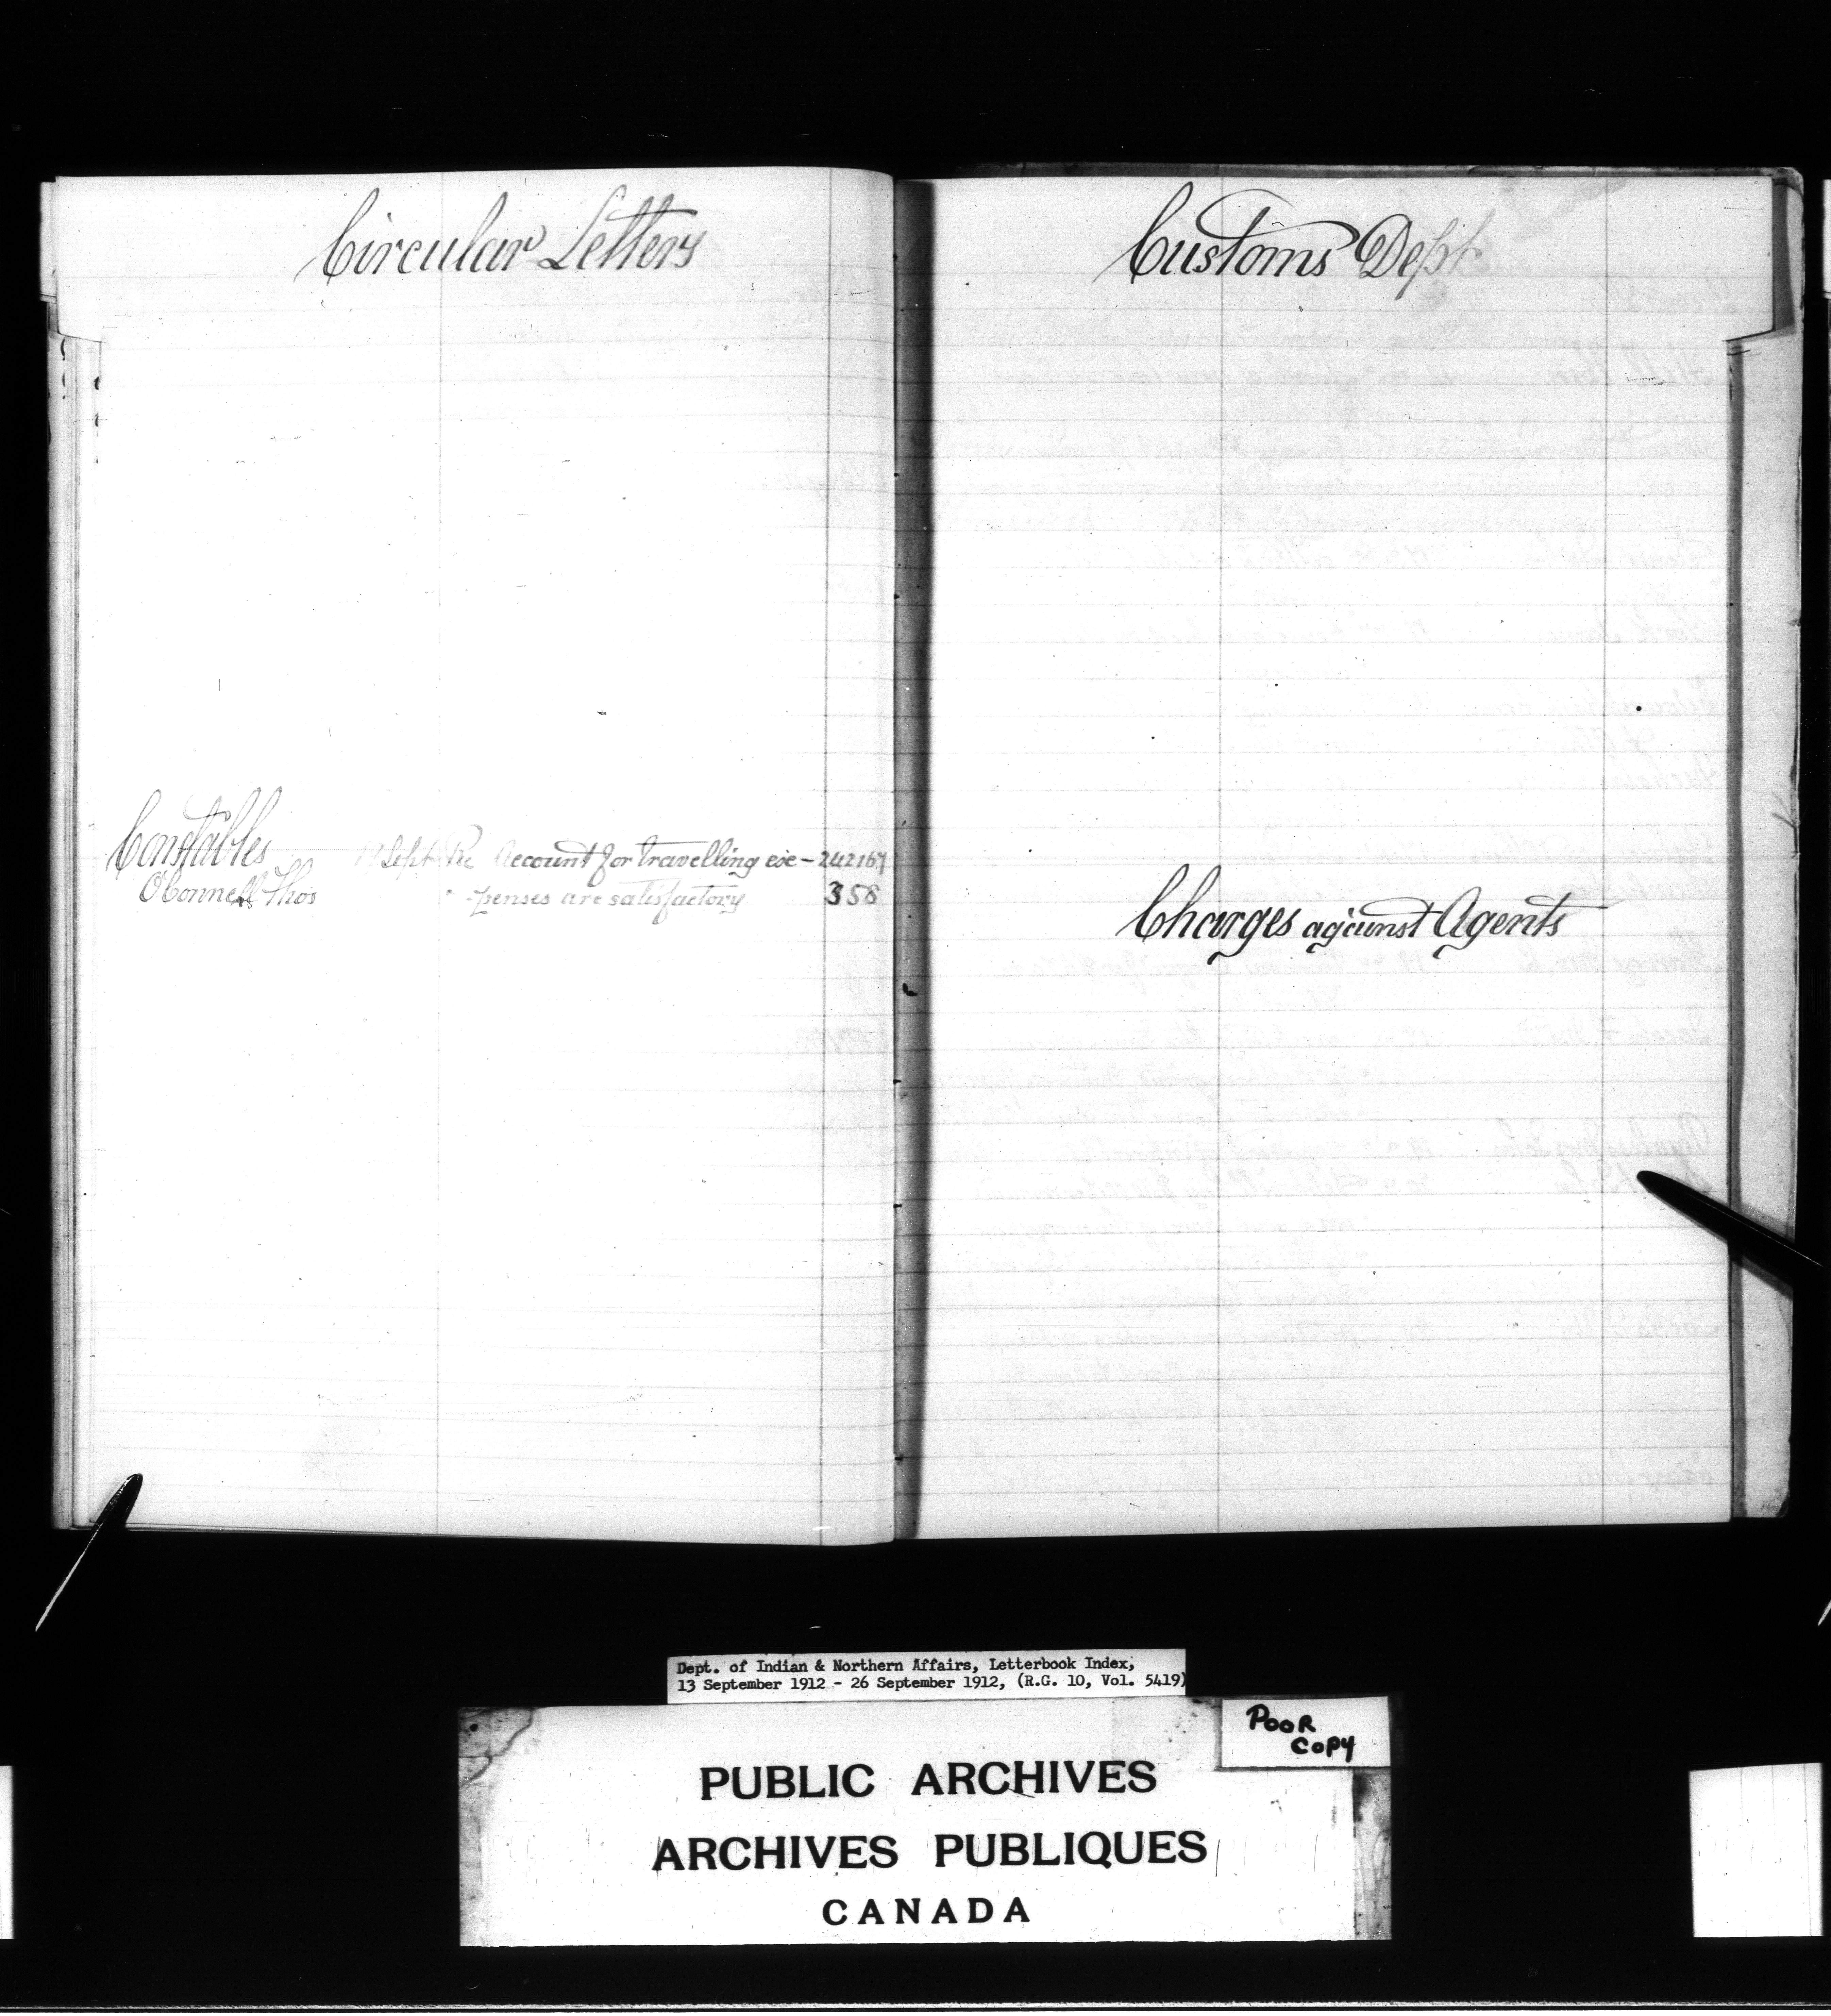 Circular Letters
Constables
O'Connell Thos
Sept Re Account for travelling ex- 242167
-penses are satisfactory 358
Customs Dept
Charges against Agents
Dept. of Indian & Northern Affairs, Letterbook Index,
13 September 1912 - 26 September 1912, (R.G. 10, Vol. 5419)
POOR
COPY
PUBLIC ARCHIVES
ARCHIVES PUBLIQUES
CANADA